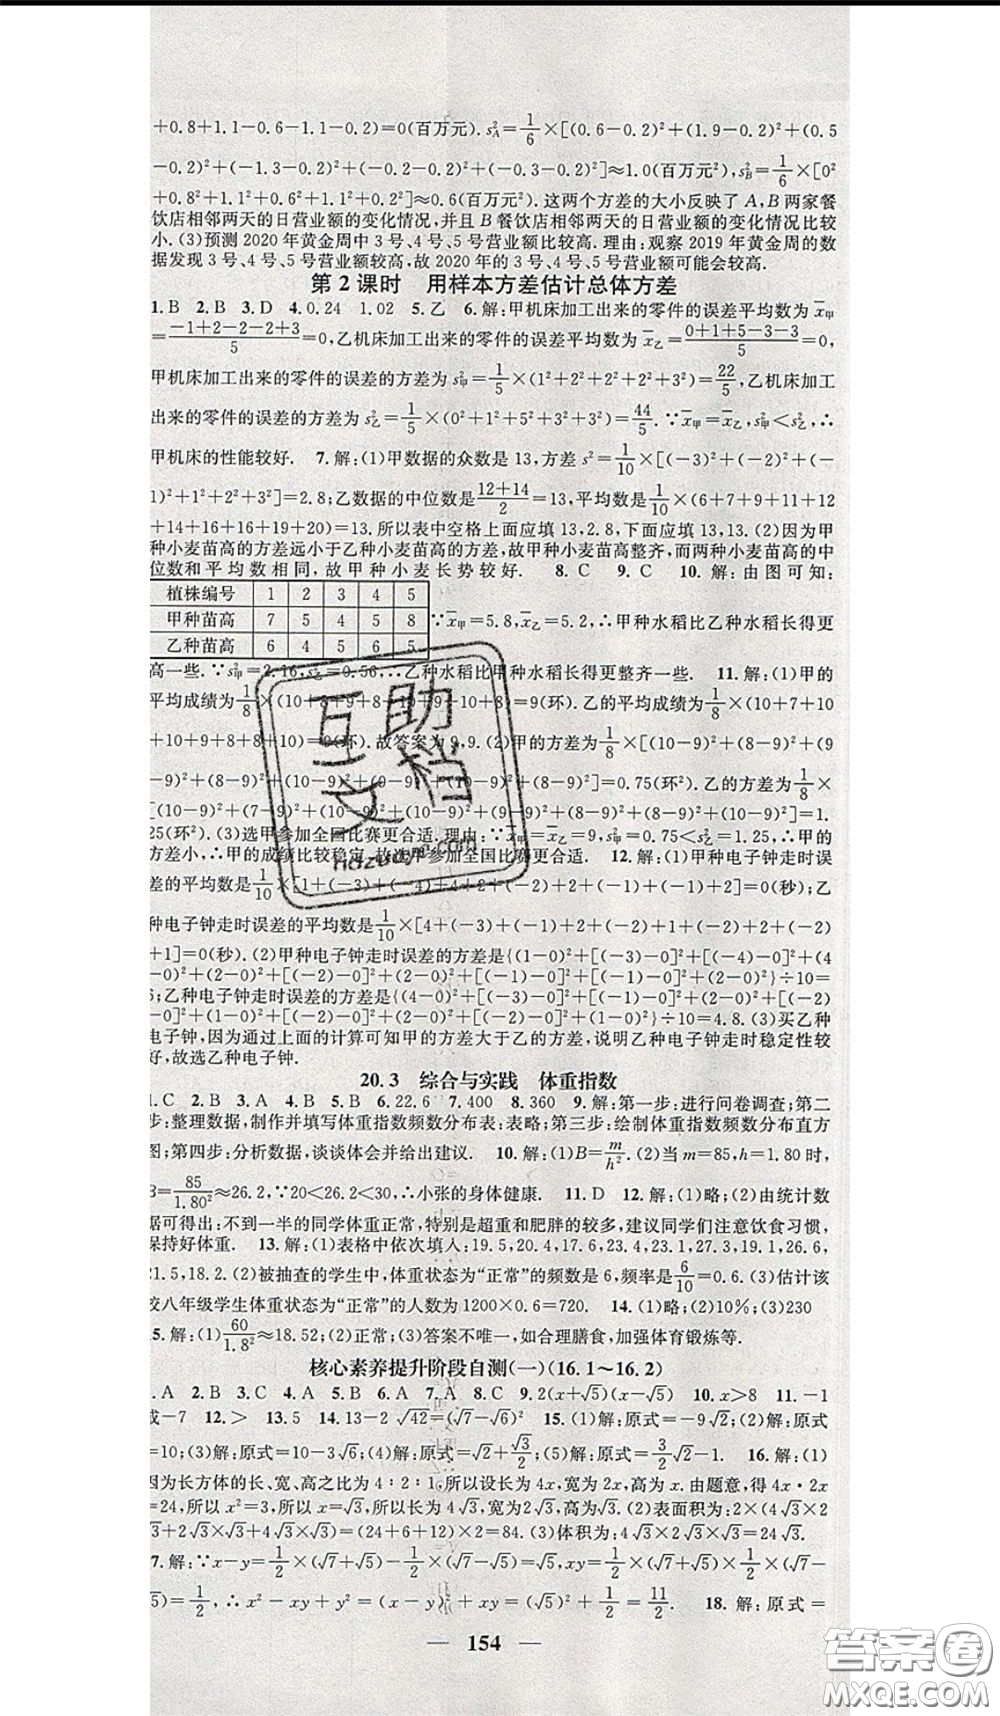 +0.8+1.1-0.6-1.1-0.2)=0(百万元).s²_A=1/6×[(0.6-0.2)²+(1.9-0.2)²+(0.5
-0.2)²+(-1.3-0.2)²+(-0.2-0.2)²+(-0.3-0.2)²]≈1.0(百万元²),s²_B=1/6×[0²
+0.8²+1.1²+0.6²+1.1²+0.2²]≈0.6(百万元²).这两个方差的大小反映了A,B两家餐
饮店相邻两天的日营业额的变化情况,并且B餐饮店相邻两天的日营业额的变化情况比较
小.(3)预测2020年黄金周中3号、4号、5号营业额比较高.理由:观察2019年黄金周的数
据发现3号、4号、5号营业额较高,故2020年的3号、4号、5号营业额可能会较高.
第2课时 用样本方差估计总体方差
1.B 2.B 3.D 4.0.24 1.02 5.乙 6.解:甲机床加工出来的零件的误差平均数为x̄甲
=(-1+2-2-2+3)/5=0,乙机床加工出来的零件的误差平均数为x̄乙=(0+1+5-3-3)/5=0,
甲机床加工出来的零件的误差的方差为s²甲=1/5×(1²+2²+2²+2²+3²)=22/5,乙机床加工
出来的零件的误差的方差为s²乙=1/5×(0²+1²+5²+3²+3²)=44/5.∵x̄甲=x̄乙,s²甲<s²乙,∴
甲机床的性能较好. 7.解:(1)甲数据的众数是13,方差s²=1/10×[(-3)²+(-2)²+(-
1)²+1²+2²+2²+3²]=2.8;乙数据的中位数是(12+14)/2=13,平均数是1/10×(6+7+9+11+12
+14+16+16+19+20)=13.所以表中空格上面应填13,2.8,下面应填13,13.(2)因为甲
种小麦苗高的方差远小于乙种小麦苗高的方差,故甲种小麦苗高整齐,而两种小麦苗高的中
位数和平均数相同,故甲种小麦长势较好. 8.C 9.C 10.解:由图可知:
植株编号 1 2 3 4 5
甲种苗高 7 5 4 5 8 ∵x̄甲=5.8,x̄乙=5.2,∴甲种水稻比乙种水稻长得更
乙种苗高 6 4 5 6 5
高一些.∵s²甲=2.16,s²乙=0.56,∴乙种水稻比甲种水稻长得更整齐一些. 11.解:(1)甲的
平均成绩为1/8×(10+8+9+8+10+9+10+8)=9(环).乙的平均成绩为1/8×(10+7+10
+10+9+8+8+10)=9(环).故答案为9,9.(2)甲的方差为1/8×[(10-9)²+(8-9)²+(9
-9)²+(8-9)²+(10-9)²+(9-9)²+(10-9)²+(8-9)²]=0.75(环²).乙的方差为1/8×
[(10-9)²+(7-9)²+(10-9)²+(10-9)²+(9-9)²+(8-9)²+(8-9)²+(10-9)²]=1.
25(环²).(3)选甲参加全国比赛更合适.理由:∵x̄甲=x̄乙=9,s²甲=0.75<s²乙=1.25,∴甲的
方差小,∴甲的成绩比较稳定,故选甲参加全国比赛更合适. 12.解:(1)甲种电子钟走时误
差的平均数是1/10×[1+(-3)+(-4)+4+2+(-2)+2+(-1)+(-1)+2]=0(秒);乙
种电子钟走时误差的平均数是1/10×[4+(-3)+(-1)+2+(-2)+1+(-2)+2+(-2)
+1]=0(秒).(2)甲种电子钟走时误差的方差是{(1-0)²+[(-3)-0]²+[(-4)-0]²+(4
-0)²+(2-0)²+[(-2)-0]²+(2-0)²+[(-1)-0]²+[(-1)-0]²+(2-0)²}÷10=
6;乙种电子钟走时误差的方差是{(4-0)²+[(-3)-0]²+[(-1)-0]²+(2-0)²+[(-2)
-0]²+(1-0)²+[(-2)-0]²+(2-0)²+[(-2)-0]²+(1-0)²}÷10=4.8.(3)买乙种
电子钟,因为通过上面的计算可知甲的方差大于乙的方差,说明乙种电子钟走时稳定性较
好,故选乙种电子钟.
20.3 综合与实践 体重指数
1.C 2.B 3.A 4.B 5.B 6.22.6 7.400 8.360 9.解:第一步:进行问卷调查;第二
步:整理数据,制作并填写体重指数频数分布表:表略;第三步:绘制体重指数频数分布直方
图;第四步:分析数据,谈谈体会并给出建议. 10.解:(1)B=m/h².(2)当m=85,h=1.80时,
B=85/1.80²≈26.2,∵20<26.2<30,∴小张的身体健康. 11.D 12.解:(1)略;(2)由统计数
据可得出:不到一半的同学体重正常,特别是超重和肥胖的较多,建议同学们注意饮食习惯,
保持好体重. 13.解:(1)表格中依次填入:19.5,20.4,17.6,23.4,23.1,27.3,19.1,26.6,
21.5,18.2.(2)被抽查的学生中,体重状态为“正常”的频数是6,频率是6/10=0.6.(3)估计该
校八年级学生体重状态为“正常”的人数为1200×0.6=720. 14.(1)略;(2)10%;(3)230
15.解:(1)60/1.8²≈18.52;(2)正常;(3)答案不唯一,如合理膳食,加强体育锻炼等.
核心素养提升阶段自测(一)(16.1~16.2)
1.A 2.B 3.C 4.A 5.B 6.A 7.A 8.C 9.2(x+√5)(x-√5) 10.x>8 11.-1
或-7 12.> 13.5 14.13-2√42=(√7-√6)² 15.(1)解:原式=-9√2;(2)解:原式
=10;(3)解:原式=10-3√6;(4)解:原式=√2+√3/2;(5)解:原式=3/2√2-1. 16.解:(1)
因为长方体的长、宽、高之比为4∶2∶1,所以设长为4x,宽为2x,高为x.由题意,得4x·2x
=24,所以x²=3,所以x=√3,所以长为4√3,宽为2√3,高为√3.(2)表面积为:2×(4√3×2
√3+2√3×√3+4√3×√3)=(24+6+12)×2=84.(3)体积为:4√3×2√3×√3=24√3.
17.解:∵x-y=1/2×(√7+√5)-1/2×(√7-√5)=√5,xy=1/2×(√7+√5)×1/2×(√7-
√5)=1/2,∴x²-xy+y²=(x-y)²+xy=(√5)²+1/2=11/2. 18.解:原式=
— 154 —
互助文档
hdzuoye.com
答案卷
MXQE.COM